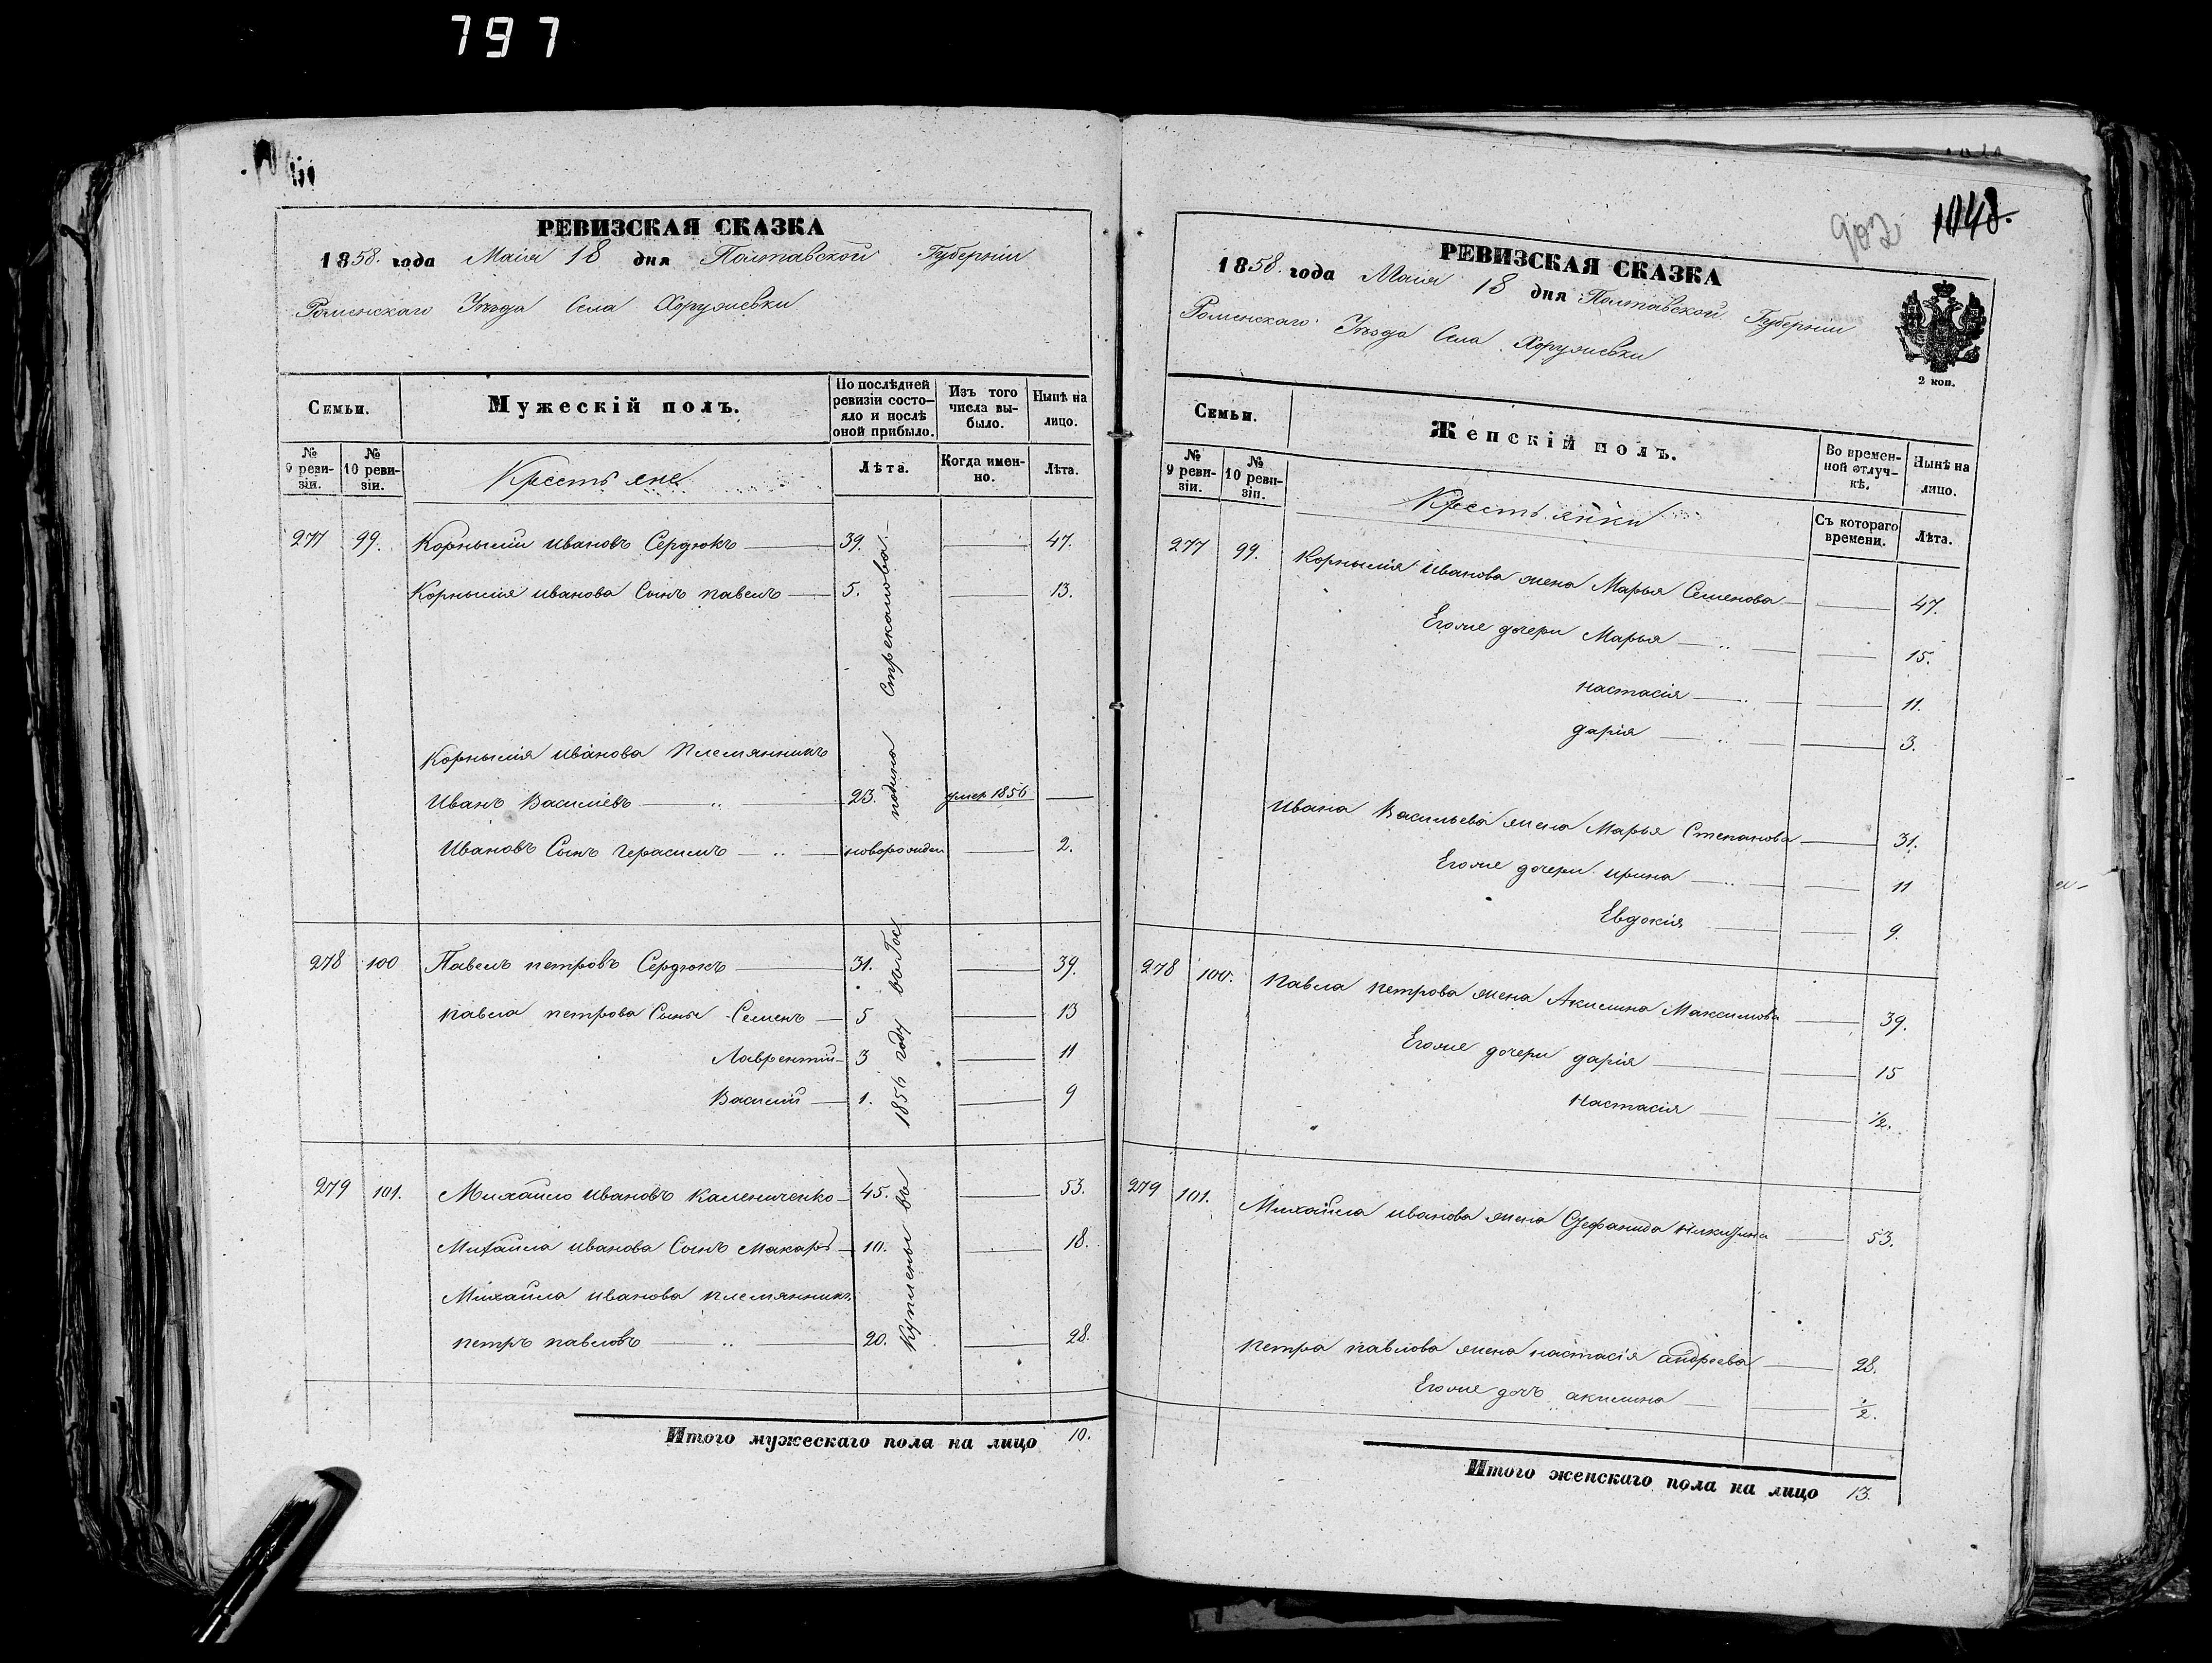 797
РЕВИЗСКАЯ СКАЗКА
1858. года Маія 18 дня Полтавской Губерніи
Роменскаго Уѣзда Села Хоружевки
Семьи.
Мужескій полъ.
По послѣдней ревизіи состояло и послѣ оной прибыло.
Изъ того числа выбыло.
Нынѣ на лицо.
№ 9 ревизіи.
№ 10 ревизіи.
Крестьяне
Лѣта.
Когда именно.
Лѣта.
277 99. Корнылій Ивановъ Сердюкъ 39. 47.
Корнылія Иванова Сынъ павелъ 5. 13.
Корнылія Иванова Племянникъ
Иванъ Василіевъ 23. умер 1856
Ивановъ Сынъ Герасимъ новорожден 2.
278 100 Павелъ петровъ Сердюкъ 31. 39.
павла петрова Сыны Семенъ 5 13
Лаврентій 3 11
Василій 1. 9
279 101. Михайло Ивановъ Калениченко 45. 53.
Михайла Иванова Сынъ Макаръ 10. 18.
Михайла Иванова племянникъ
петръ павловъ 20. 28.
Куплены въ 1856 году въ Гос
Итого мужескаго пола на лицо 10.
902 1048.
РЕВИЗСКАЯ СКАЗКА
1858. года Маія 18 дня Полтавской Губерніи
Роменскаго Уѣзда Села Хоружевки
2 коп.
Семьи.
Женскій полъ.
Во временной отлучкѣ.
Нынѣ на лицо.
№ 9 ревизіи.
№ 10 ревизіи.
Крестьянки
Съ котораго времени.
Лѣта.
277 99. Корнылія Иванова жена Марья Семенова 47.
Егоже дочери Марья 15.
настасія 11.
дарія 3.
Ивана Васильева жена Марья Степанова 31.
Егоже дочери Ирина 11
Евдокія 9.
278 100. Павла петрова жена Акилина Максимова 39.
Егоже дочери дарія 15
Настасія 1/2.
279 101. Михайла Иванова жена Стефанида Никитина 53.
петра павлова жена настасія андреева 28.
Егоже дочъ акилина 1/2.
Итого женскаго пола на лицо 13.